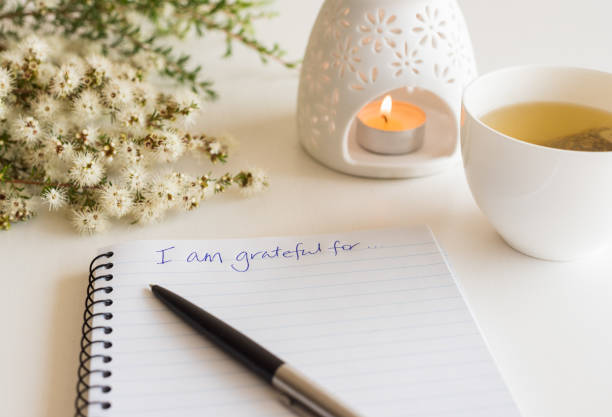 I am grateful for ...